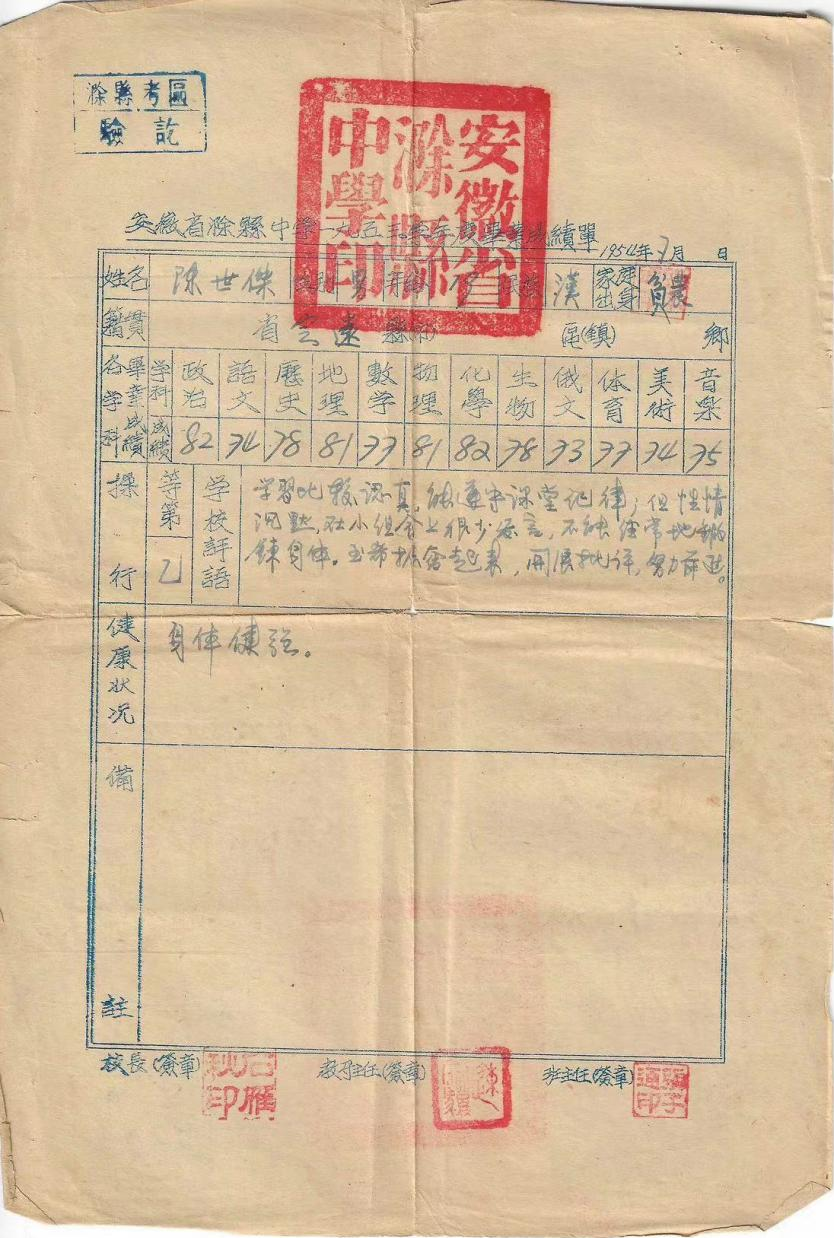 滁縣考區
驗訖
安徽省滁縣中學印
安徽省滁縣中学一九五三学年度畢業成績單
1954年7月 日
姓名 陳世傑 性别 男 年龄 民族 漢 家庭出身 貧農
籍貫 省定遠縣(市) 區(鎮) 鄉
各学科畢業成績
学科 政治 語文 歷史 地理 数学 物理 化學 生物 俄文 体育 美術 音樂
成績 82 74 78 81 77 81 82 78 73 77 74 75
操行 等第 乙 学校評語
学習比較認真,能遵守課堂纪律;但性情
沉默,在小组会上很少發言,不能经常地鍛
鍊身体。玉希振奋起来,開展批评,努力前進。
健康状况 身体健強。
備註
校長(簽章) 教导主任(簽章) 班主任(簽章)